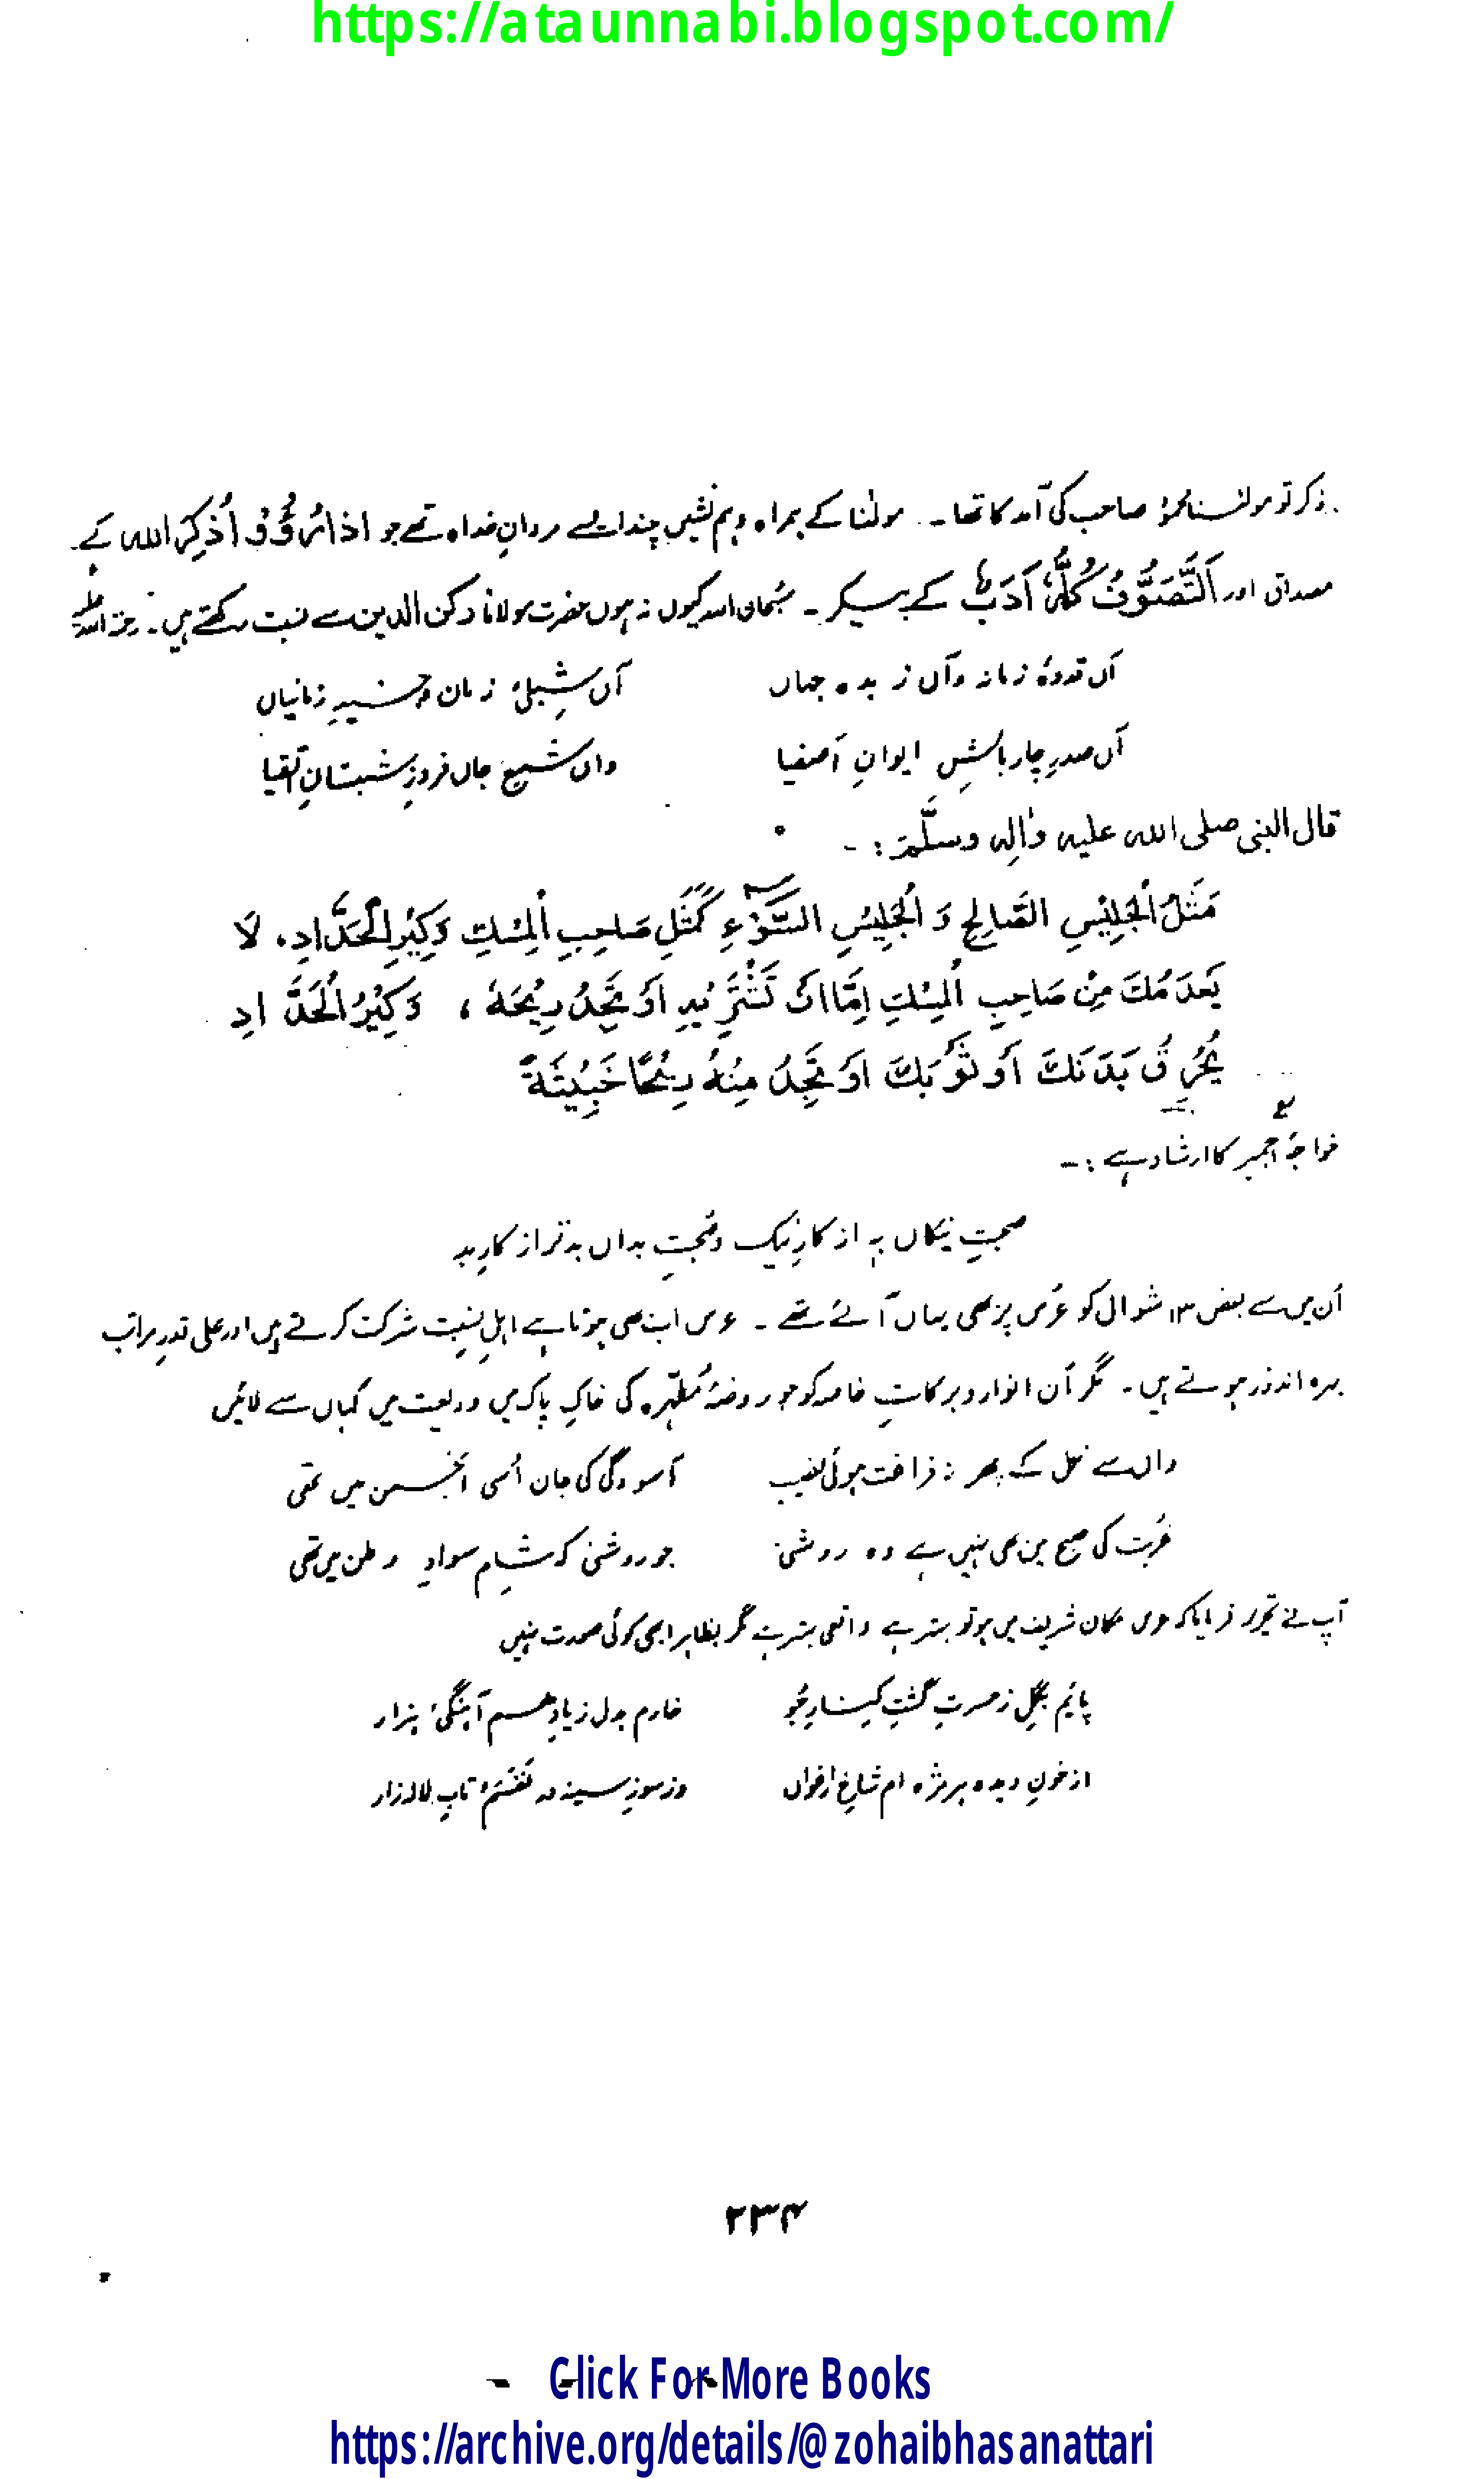 https://ataunnabi.blogspot.com/
ذکر تو مولٰنا محمود صاحب کی آمد کا تھا۔ مولٰنا کے ہمراہ وہم نشیں چند ایسے مردانِ خدا تھے جو اذا رُؤُوْ اُذْکِرَ اللہ کے
مصداق اور اَلتَّصَوُّفُ کُلُّہٗ اَدَبٌ کے پیکر۔ سُبحان اللہ کیوں نہ ہوں حضرت مولانا رکن الدین سے نسبت رکھتے ہیں۔ رحمۃ اللہ علیہ
آں قدوۂ زمانہ وآں زبدہ جہاں آں شبلیٔ زمان و جنیدِ زمانیاں
آں صدرِ چار بالشِ ایوانِ اَصفیا واں شمعِ جاں فروزِ شبستانِ اَتقیا
قال النبی صلی اللہ علیہ واٰلِہٖ وسلَّمَ :-
مَثَلُ الْجَلِیْسِ الصَّالِحِ وَ الْجَلِیْسِ السَّوْءِ کَمَثَلِ صَاحِبِ الْمِسْکِ وَکِیْرِ الْحَدَّادِ، لَا
یَعْدَمُکَ مِنْ صَاحِبِ الْمِسْکِ اِمَّا انْ تَشْتَرِیْہِ اَوْ تَجِدُ رِیْحَہٗ ، وَکِیْرُ الْحَدَّادِ
یُحْرِقُ بَدَنَکَ اَوْ ثَوْبَکَ اَوْ تَجِدُ مِنْہُ رِیْحًا خَبِیْثَۃً
خواجۂ اجمیر کا ارشاد ہے :-
صحبتِ نیکاں بہ از کارِ نیک وصُحبتِ بداں بدتر از کارِ بد
اُن میں سے بعض ۱۳ شوال کو عُرس پر بھی یہاں آئے تھے۔ عرس اب بھی ہوتا ہے اہلِ نسبت شرکت کرتے ہیں اور علی قدرِ مراتب
بہرہ اندوز ہوتے ہیں۔ مگر اُن انوار و برکاتِ خاصہ کو جو روضۂ مُطہّرہ کی خاکِ پاک میں ودیعت ہیں کہاں سے لائیں
واں سے نکل کے پھر نہ فراغت ہوئی نصیب آسودگی کی جان اُسی انجمن میں تھی
غربت کی صبح میں بھی نہیں ہے وہ روشنی جو روشنی کہ شامِ سوادِ وطن میں تھی
آپ نے تحریر فرمایا کہ عرس مکان شریف میں ہو تو بہتر ہے واقعی بہتر ہے مگر بظاہر ابھی کوئی صورت نہیں
پایَم بگِل زحسرتِ گشتِ کنارِ جُو خارم بدل زیادِ ہم آہنگیٔ ہزار
از خونِ دیدہ ہر مژہ ام شاخِ ارغواں وز سوزِ سینہ در نَفَسَم تابِ لالہ زار
۲۳۴
Click For More Books
https://archive.org/details/@zohaibhasanattari